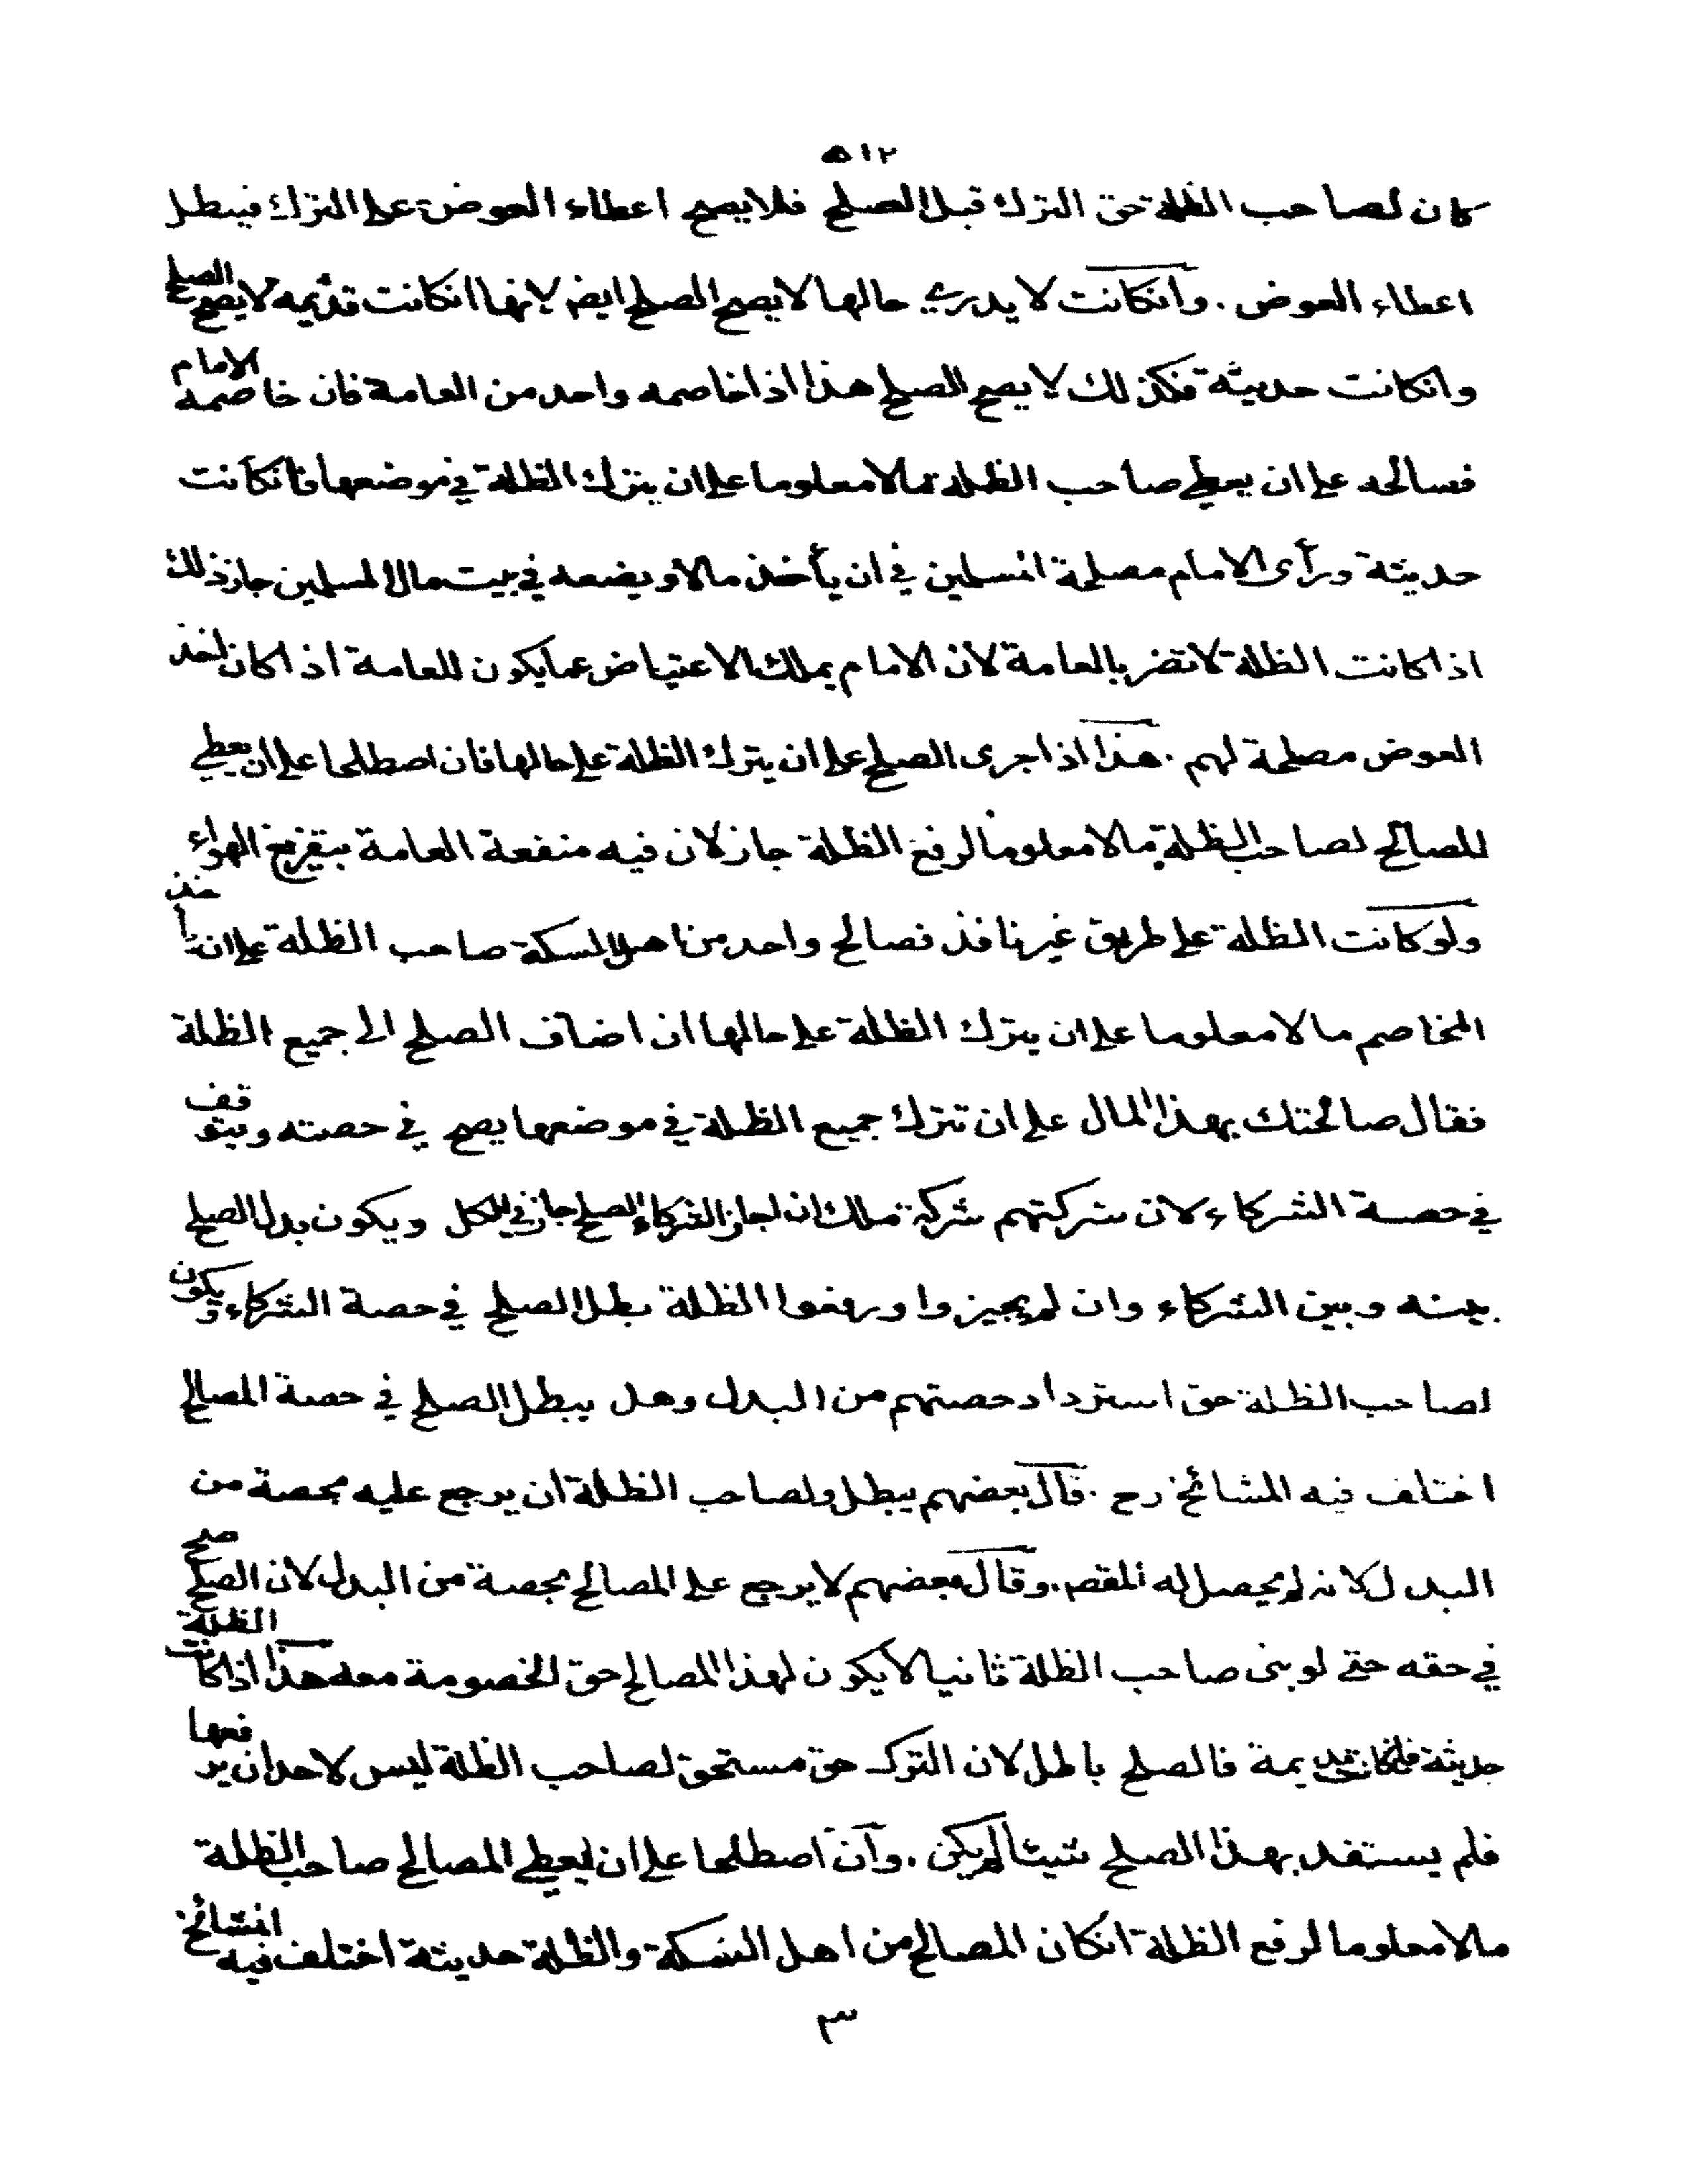 ٥١٢
كان لصاحب الظلة حق الترك قبل الصلح فلا يصح اعطاء العوض على الترك فيبطل
اعطاء العوض . وانكانت لا يدرى حالها لا يصح الصلح ايضا لانها انكانت قديمة لا يصح الصلح
وانكانت حديثة فكذلك لا يصح الصلح هذا اذا خاصمه واحد من العامة فان خاصمه الامام
فصالحه على ان يعطى صاحب الظلة مالا معلوما على ان يترك الظلة في موضعها فانكانت
حديثة ورأى الامام مصلحة المسلمين في ان يأخذ مالا و يضعه في بيت مال المسلمين جاز ذلك
اذا كانت الظلة لا تضر بالعامة لان الامام يملك الاعتياض عما يكون للعامة اذا كان اخذ
العوض مصلحة لهم . هذا اذا جرى الصلح على ان يترك الظلة على حالها فان اصطلحا على ان يعطي
للصالح لصاحب الظلة مالا معلوما لرفع الظلة جاز لان فيه منفعة العامة بتفريغ الهواء
ولو كانت الظلة على طريق غير نافذ فصالح واحد من اهل السكة صاحب الظلة على ان يأخذ
المخاصم مالا معلوما على ان يترك الظلة على حالها ان اضاف الصلح الى جميع الظلة
فقال صالحتك بهذا المال على ان تترك جميع الظلة في موضعها يصح في حصته ويتوقف
في حصة الشركاء لان شركتهم شركة ملك ان اجاز الشركاء الصلح جاز في الكل ويكون بدل الصلح
بينه وبين الشركاء وان لم يجيزوا ورفعوا الظلة بطل الصلح في حصة الشركاء ويكون
لصاحب الظلة حق استرداد حصتهم من البدل وهل يبطل الصلح في حصة المصالح
اختلف فيه المشائخ رح . قال بعضهم يبطل ولصاحب الظلة ان يرجع عليه بحصة من
البدل لانه لم يحصل له المقصد . وقال بعضهم لا يرجع على المصالح بحصة من البدل لان الصلح صح
في حقه حتى لو بنى صاحب الظلة ثانيا لا يكون لهذا المصالح حق الخصومة معه هذا اذا كانت الظلة
حديثة فانكانت قديمة فالصلح باطل لان الترك حق مستحق لصاحب الظلة ليس لاحد ان يرفعها
فلم يستفد بهذا الصلح شيئا لم يكن . وان اصطلحا على ان يعطى المصالح صاحب الظلة
مالا معلوما لرفع الظلة انكان المصالح من اهل السكة والظلة حديثة اختلف فيه المشائخ
٣